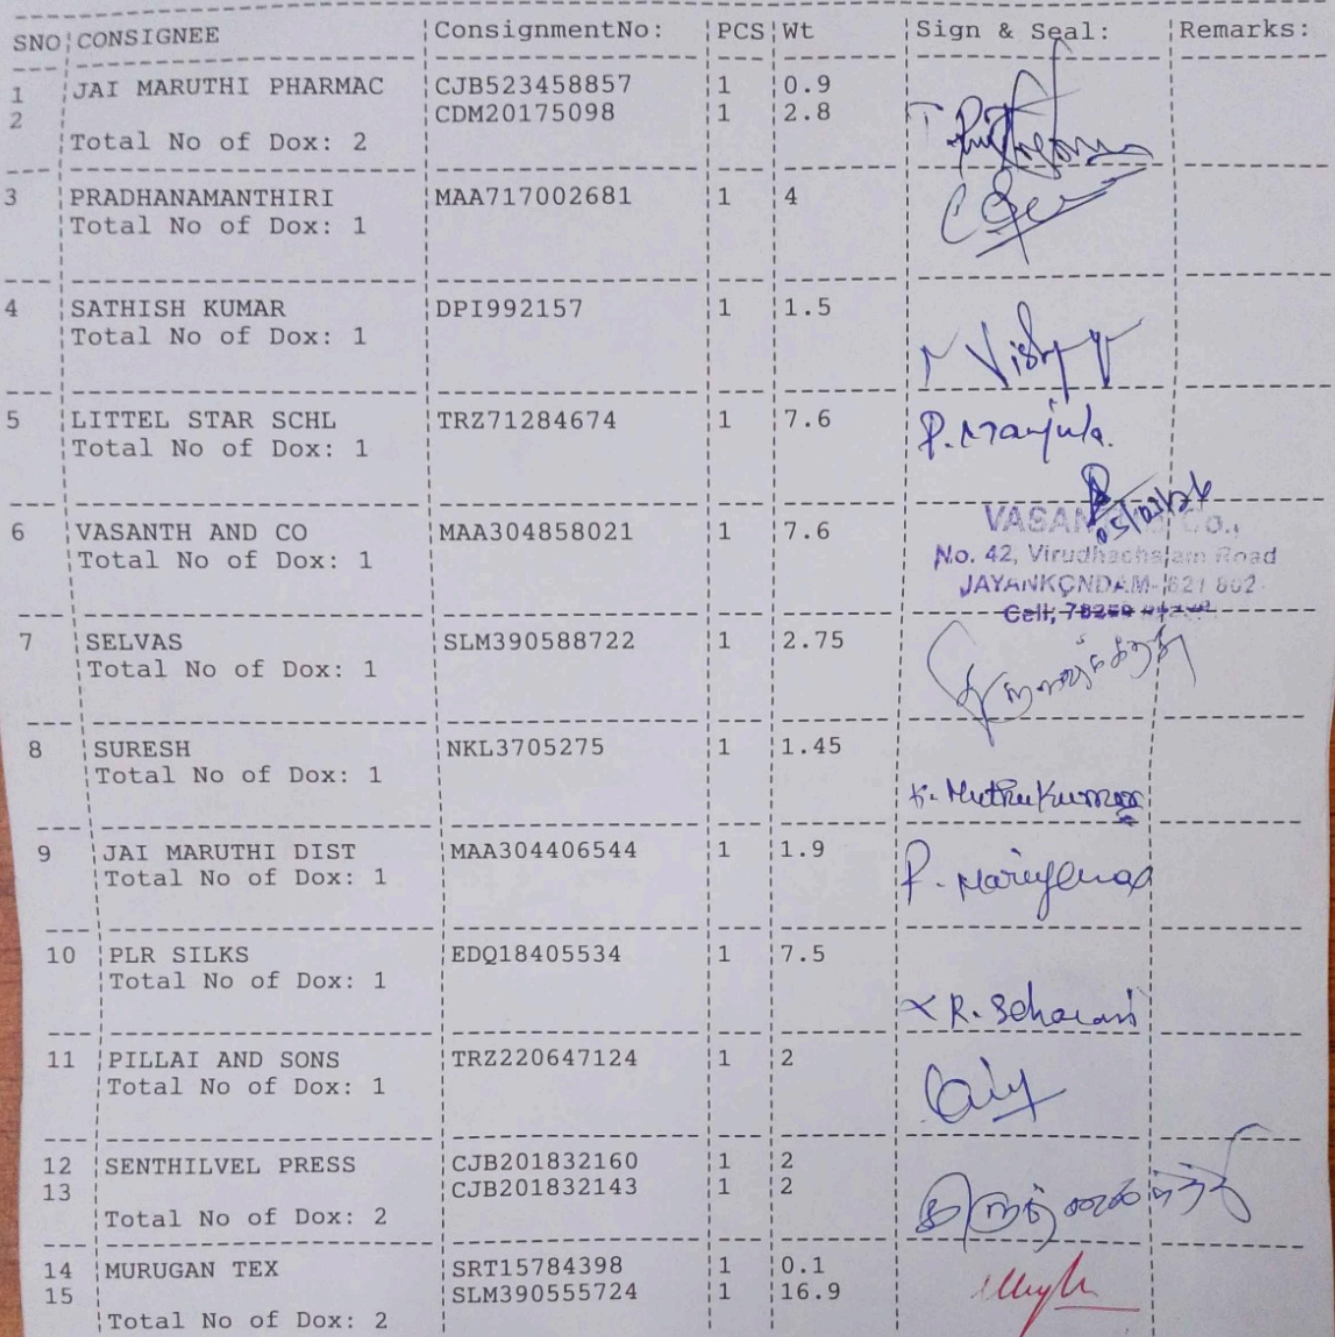 SNO CONSIGNEE ConsignmentNo: PCS Wt Sign & Seal: Remarks:
1 JAI MARUTHI PHARMAC CJB523458857 1 0.9
2 CDM20175098 1 2.8
Total No of Dox: 2
3 PRADHANAMANTHIRI MAA717002681 1 4
Total No of Dox: 1
4 SATHISH KUMAR DPI992157 1 1.5
Total No of Dox: 1
5 LITTEL STAR SCHL TRZ71284674 1 7.6 P. Manjula.
Total No of Dox: 1
05/03/26
6 VASANTH AND CO MAA304858021 1 7.6 Co.,
Total No of Dox: 1 No. 42, Virudhachalam Road
JAYANKONDAM- 621 802
Cell;
7 SELVAS SLM390588722 1 2.75
Total No of Dox: 1
8 SURESH NKL3705275 1 1.45
Total No of Dox: 1
K. Muthukumar
9 JAI MARUTHI DIST MAA304406544 1 1.9
Total No of Dox: 1
10 PLR SILKS EDQ18405534 1 7.5
Total No of Dox: 1
11 PILLAI AND SONS TRZ220647124 1 2
Total No of Dox: 1
12 SENTHILVEL PRESS CJB201832160 1 2
13 CJB201832143 1 2
Total No of Dox: 2
14 MURUGAN TEX SRT15784398 1 0.1
15 SLM390555724 1 16.9
Total No of Dox: 2